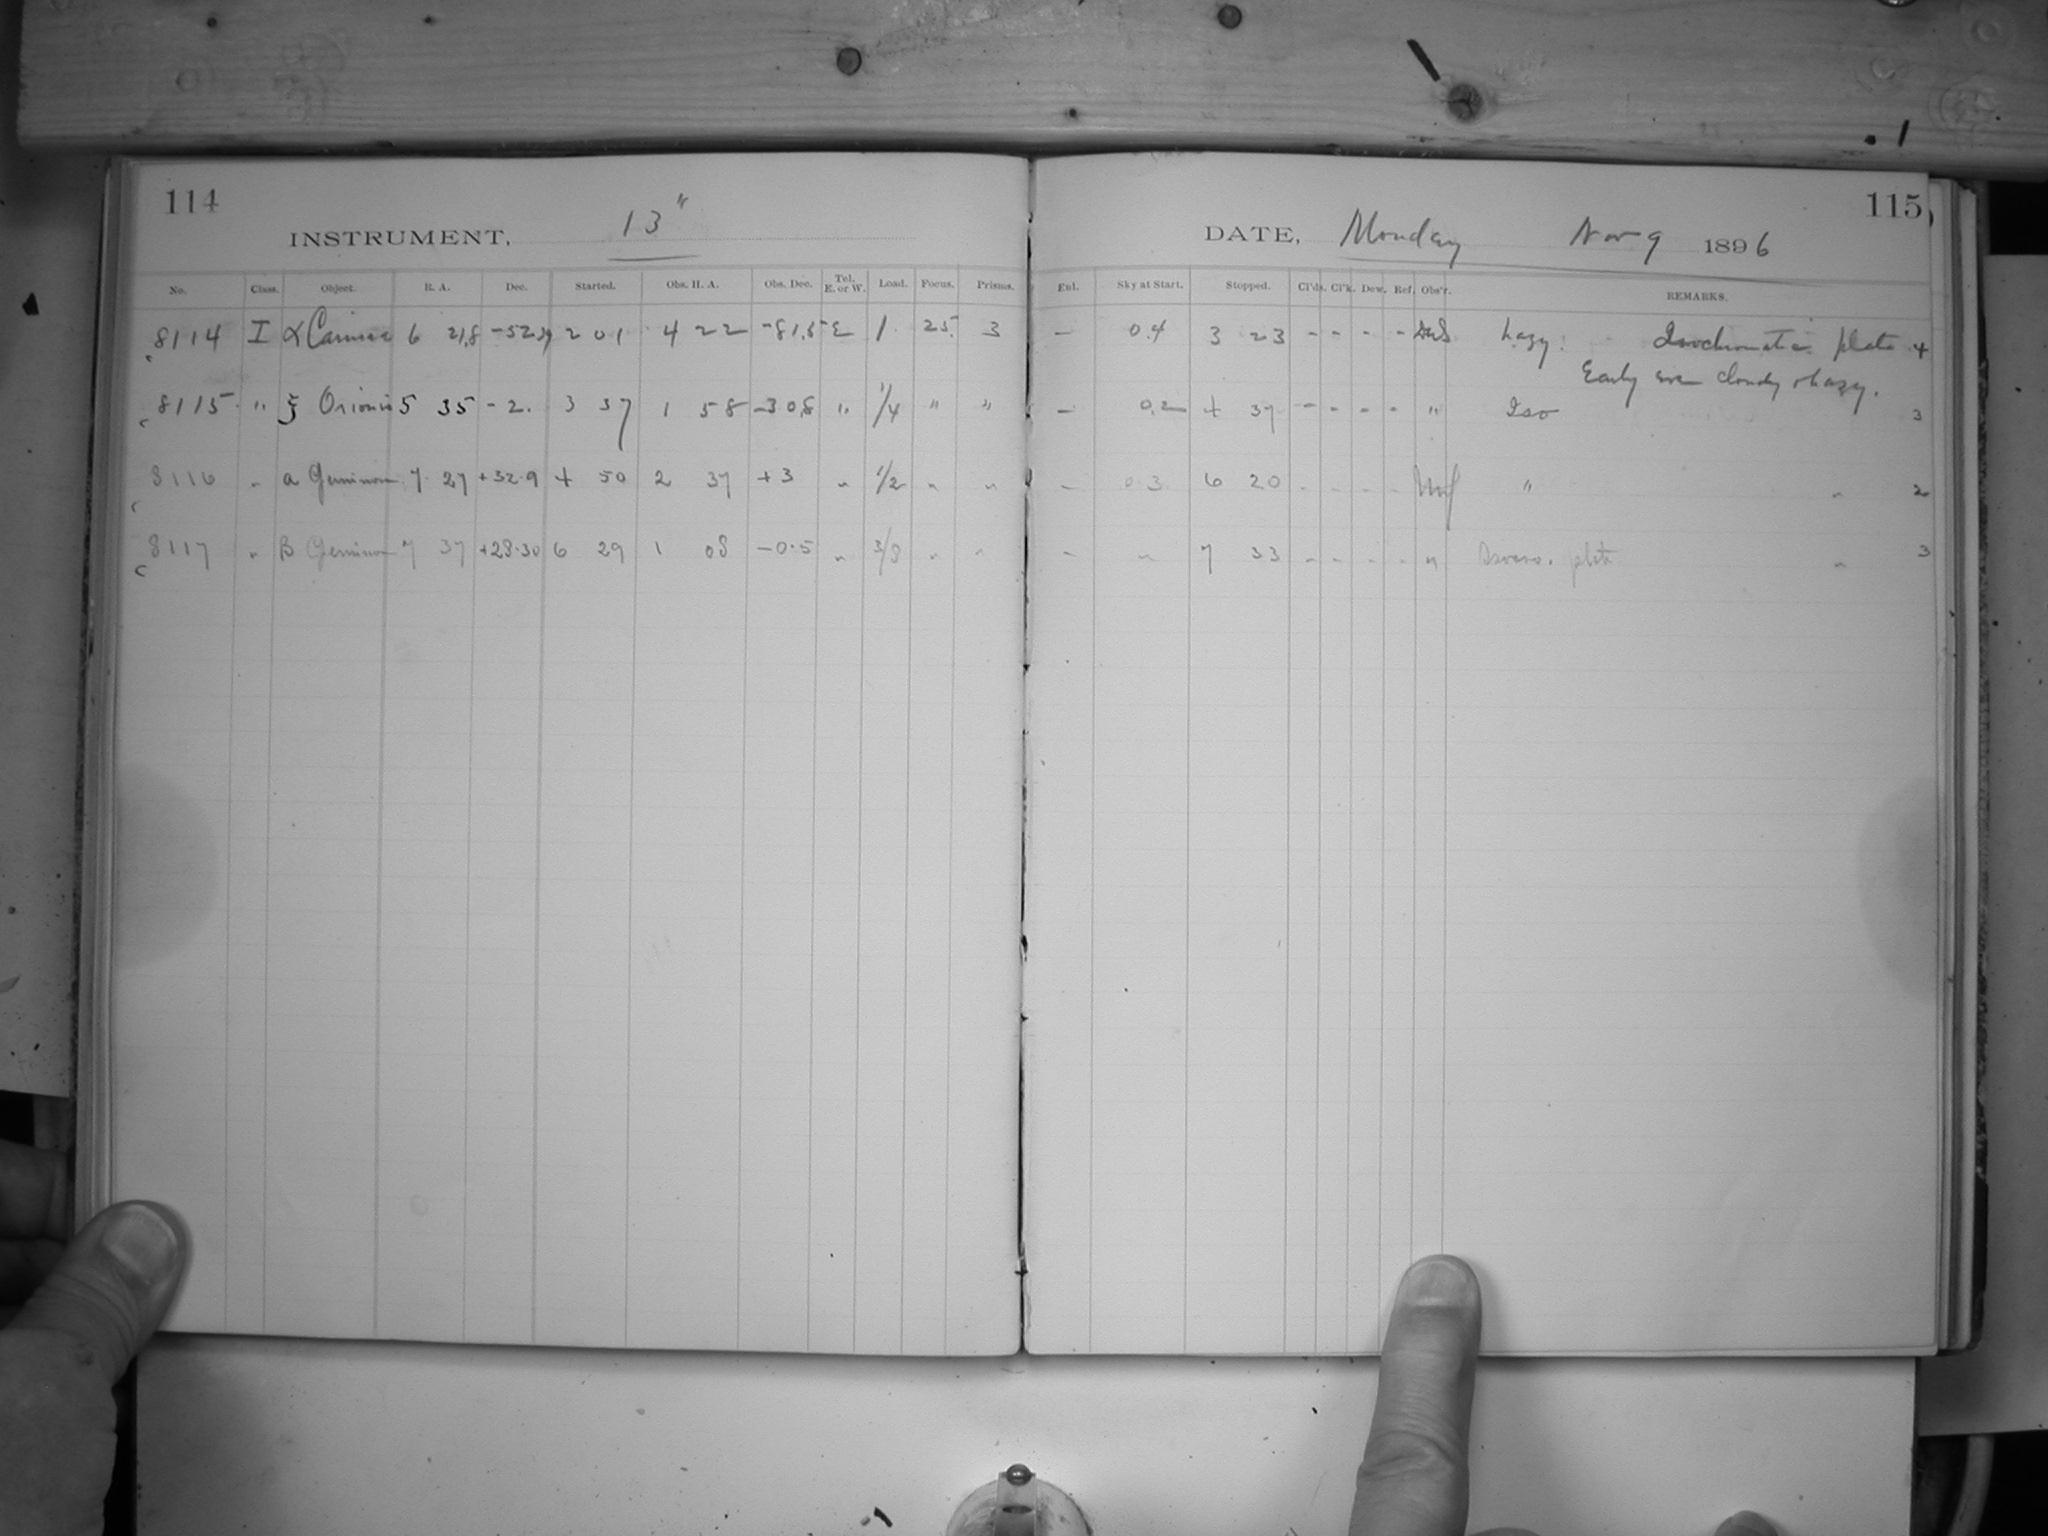 114
INSTRUMENT, 13"
No. Class. Object. R. A. Dec. Started. Obs. H. A. Obs. Dec. Tel. E. or W. Load. Focus. Prisms.
8114 I α Carinae 6 21,8 -52.39 2 01 4 22 -81,5 E 1 25. 3
8115 " ξ Orionis 5 35 - 2. 3 37 1 58 -30,8 " 1/4 " "
8116 " a Geminor 7 27 +32.9 4 50 2 37 +3 " 1/2 " "
8117 " B Geminor 7 37 +28.30 6 29 1 08 -0.5 " 3/8 " "
115
DATE, Monday Nov 9 1896
Enl. Sky at Start. Stopped. Cl'ds. Cl'k. Dew. Ref. Obs'r. REMARKS.
- 0.4 3 23 - - - - hazy. Isochromatic plate 4
Early eve cloudy & hazy.
- 0.2 4 37 - - - - " Iso 3
- 0.3 6 20 - - - - " " 2
- " 7 33 - - - - " plate " 3